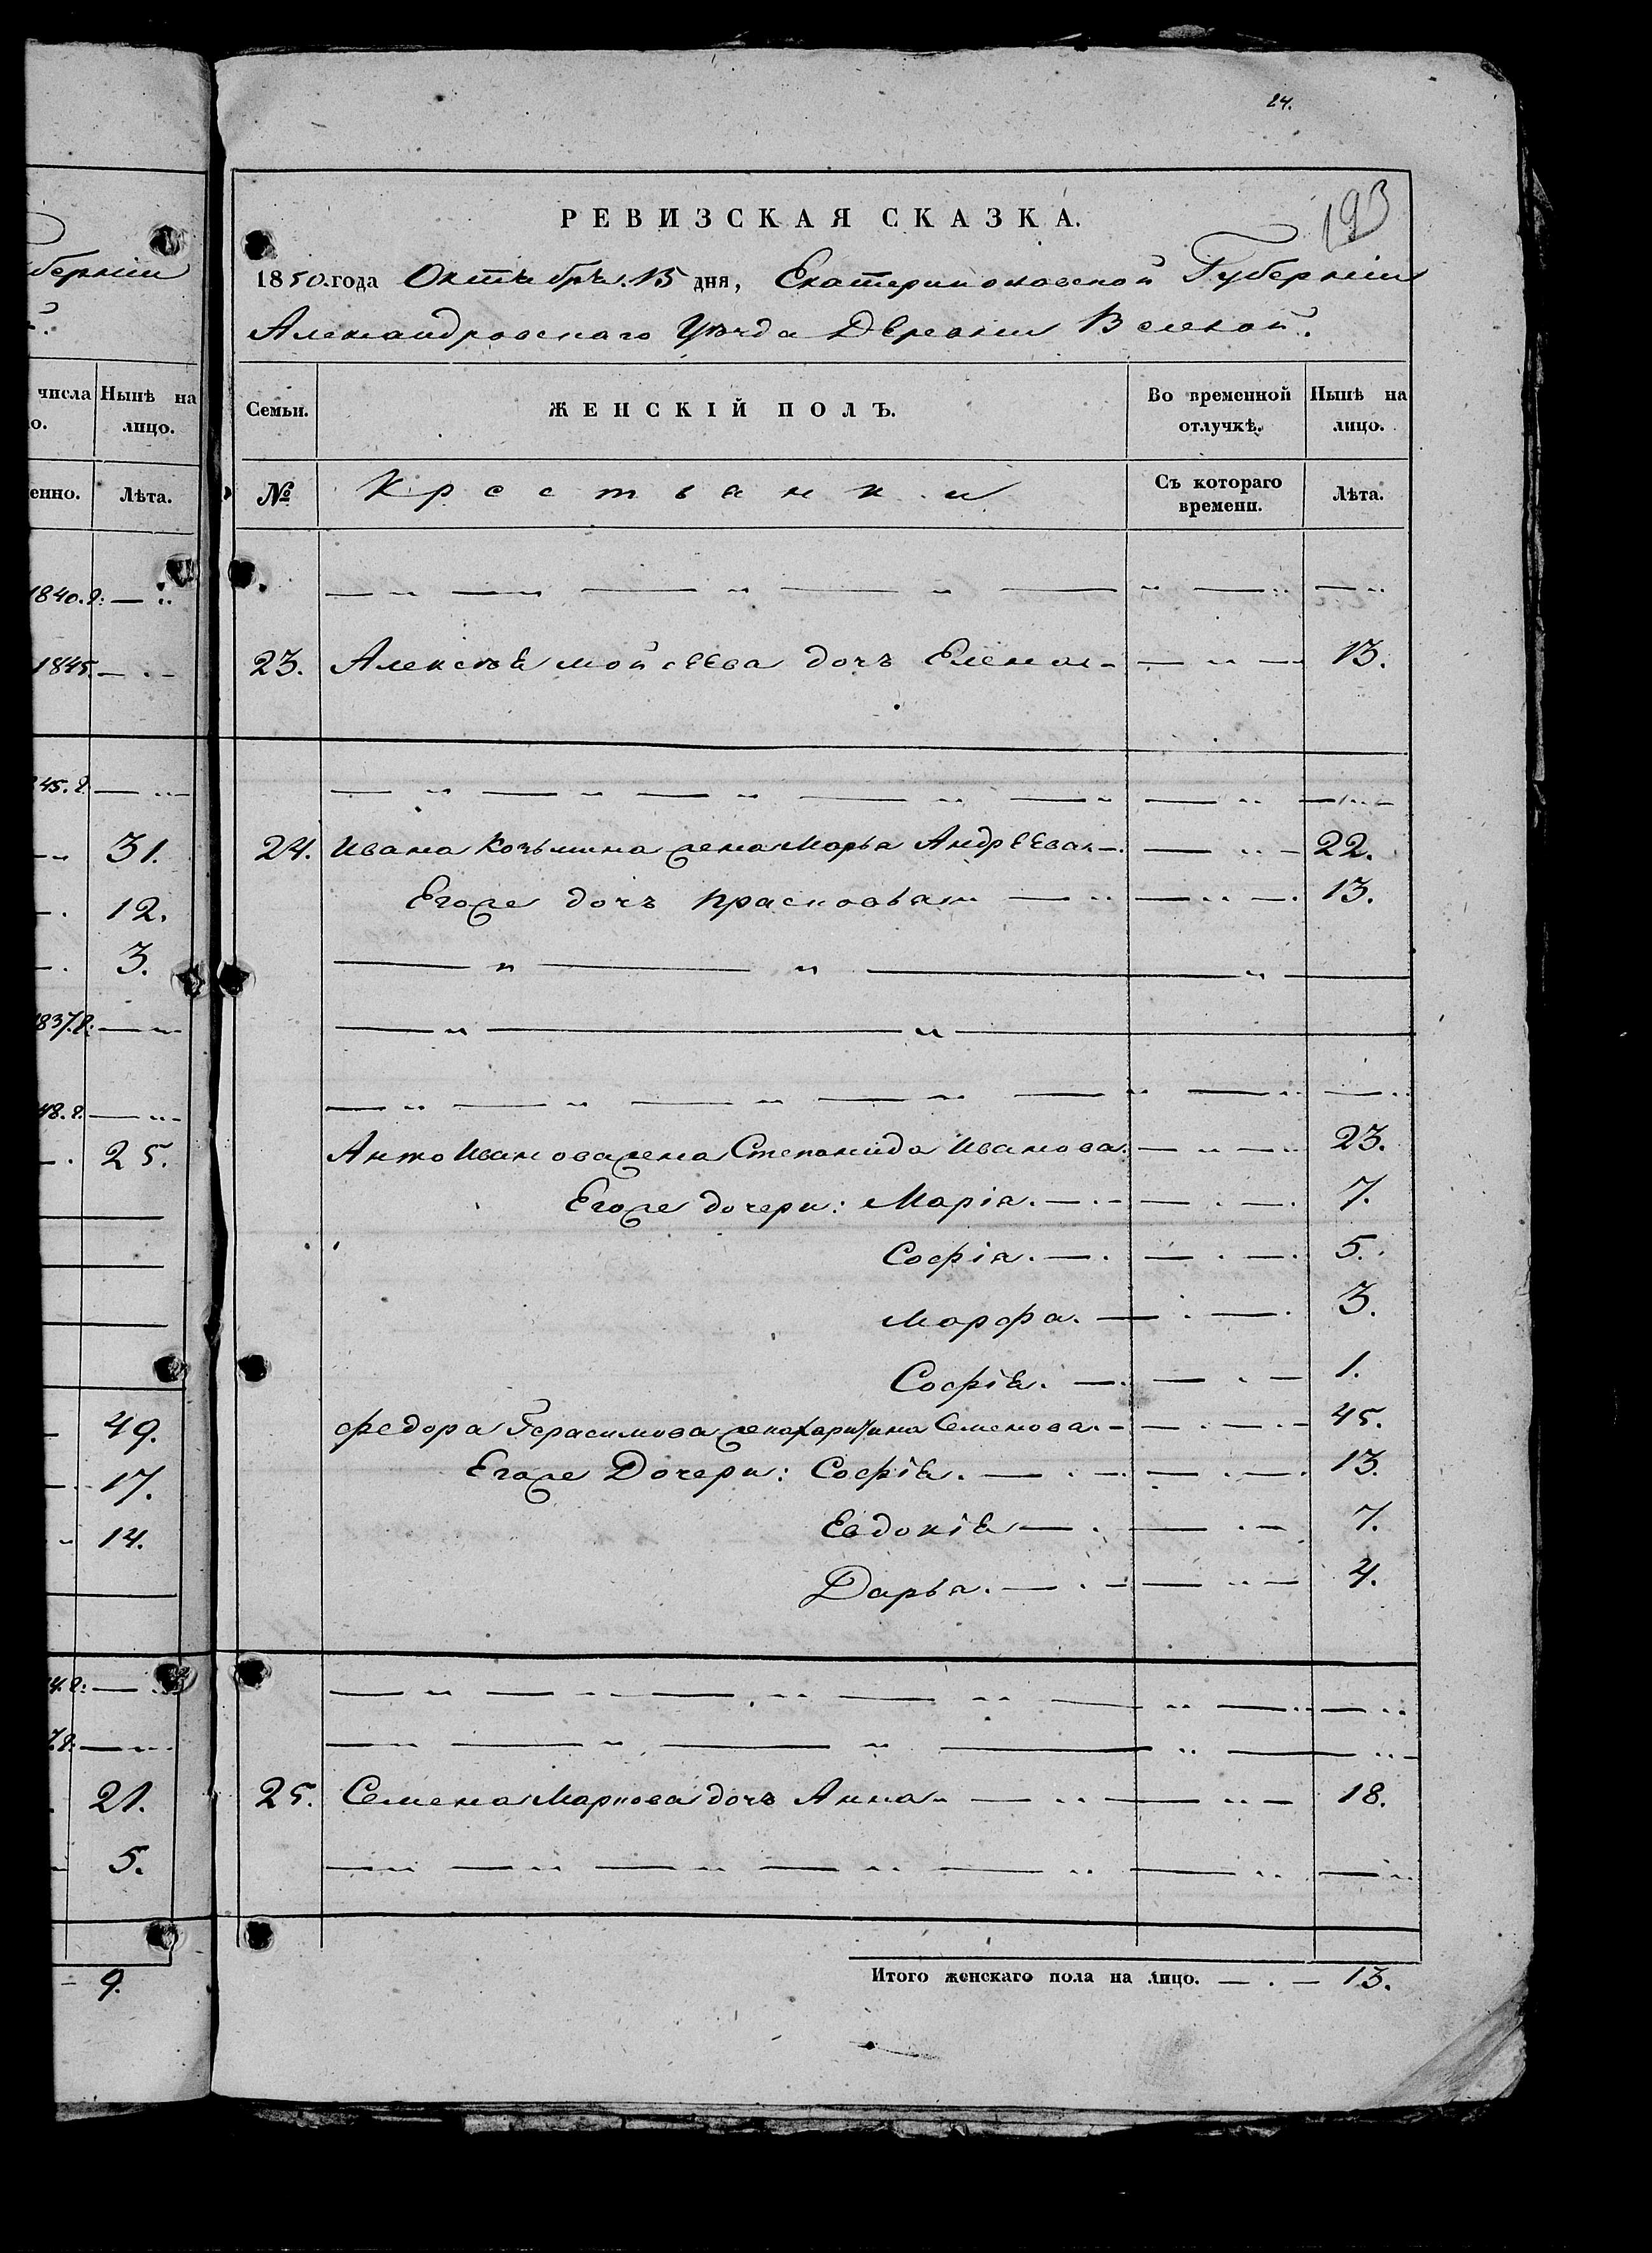 24.
193
РЕВИЗСКАЯ СКАЗКА.
1850. года Октября 15 дня, Екатеринославской Губерніи
Александровскаго Уѣзда Деревни
Семьи. ЖЕНСКІЙ ПОЛЪ. Во временной отлучкѣ. Нынѣ на лицо.
№ Крестьянки Съ котораго времени. Лѣта.
23. Алексѣя Мойсеева дочь Елена 13.
24. Ивана Козьмина жена Марья Андреева 22.
Егоже дочь Прасковья 13.
Ивановажена Степанида Иванова. 23.
Егоже дочери: Марія. 7.
Софія. 5.
Марфа. 3.
Софія. 1.
Федора Герасимова жена Семенова. 45.
Егоже Дочери: Софія. 13.
Евдокія 7.
Дарья. 4.
25. Семена Маркова дочь Анна 18.
Итого женскаго пола на лицо. 13.
берніи
числа Нынѣ на
о. лицо.
енно. Лѣта.
1840.г.
1845.
45.г.
31.
12.
3.
837.г.
48.г.
25.
49.
17.
14.
21.
5.
9.